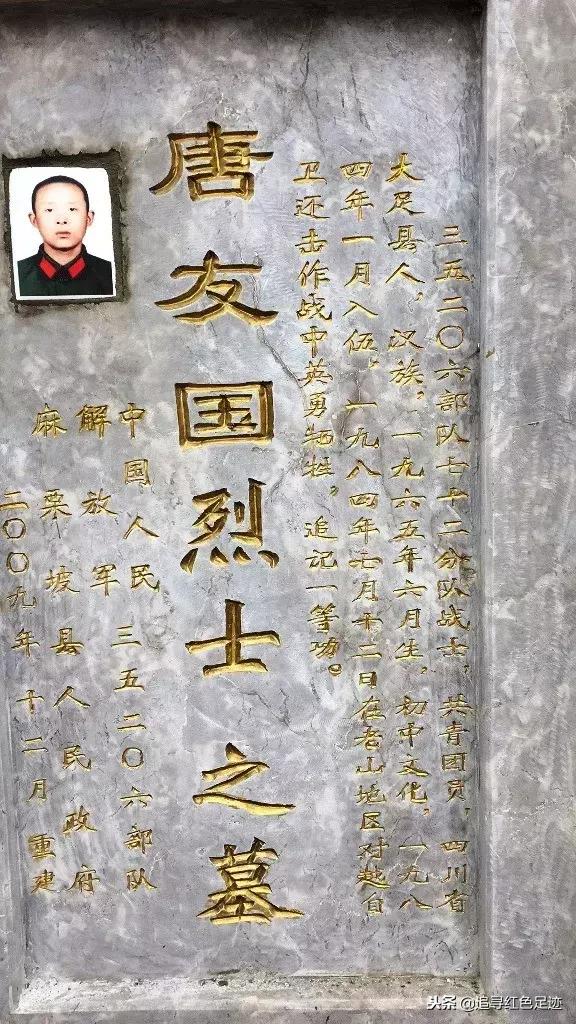 三五二〇六部队七十二分队战士，共青团员，四川省
大足县人，汉族，一九六五年六月生，初中文化，一九八
四年一月入伍，一九八四年七月十二日在老山地区对越自
卫还击作战中英勇牺牲，追记一等功。
唐友国烈士之墓
中国人民三五二〇六部队
解放军
麻栗坡县人民政府
二〇〇九年十二月重建
头条@追寻红色足迹